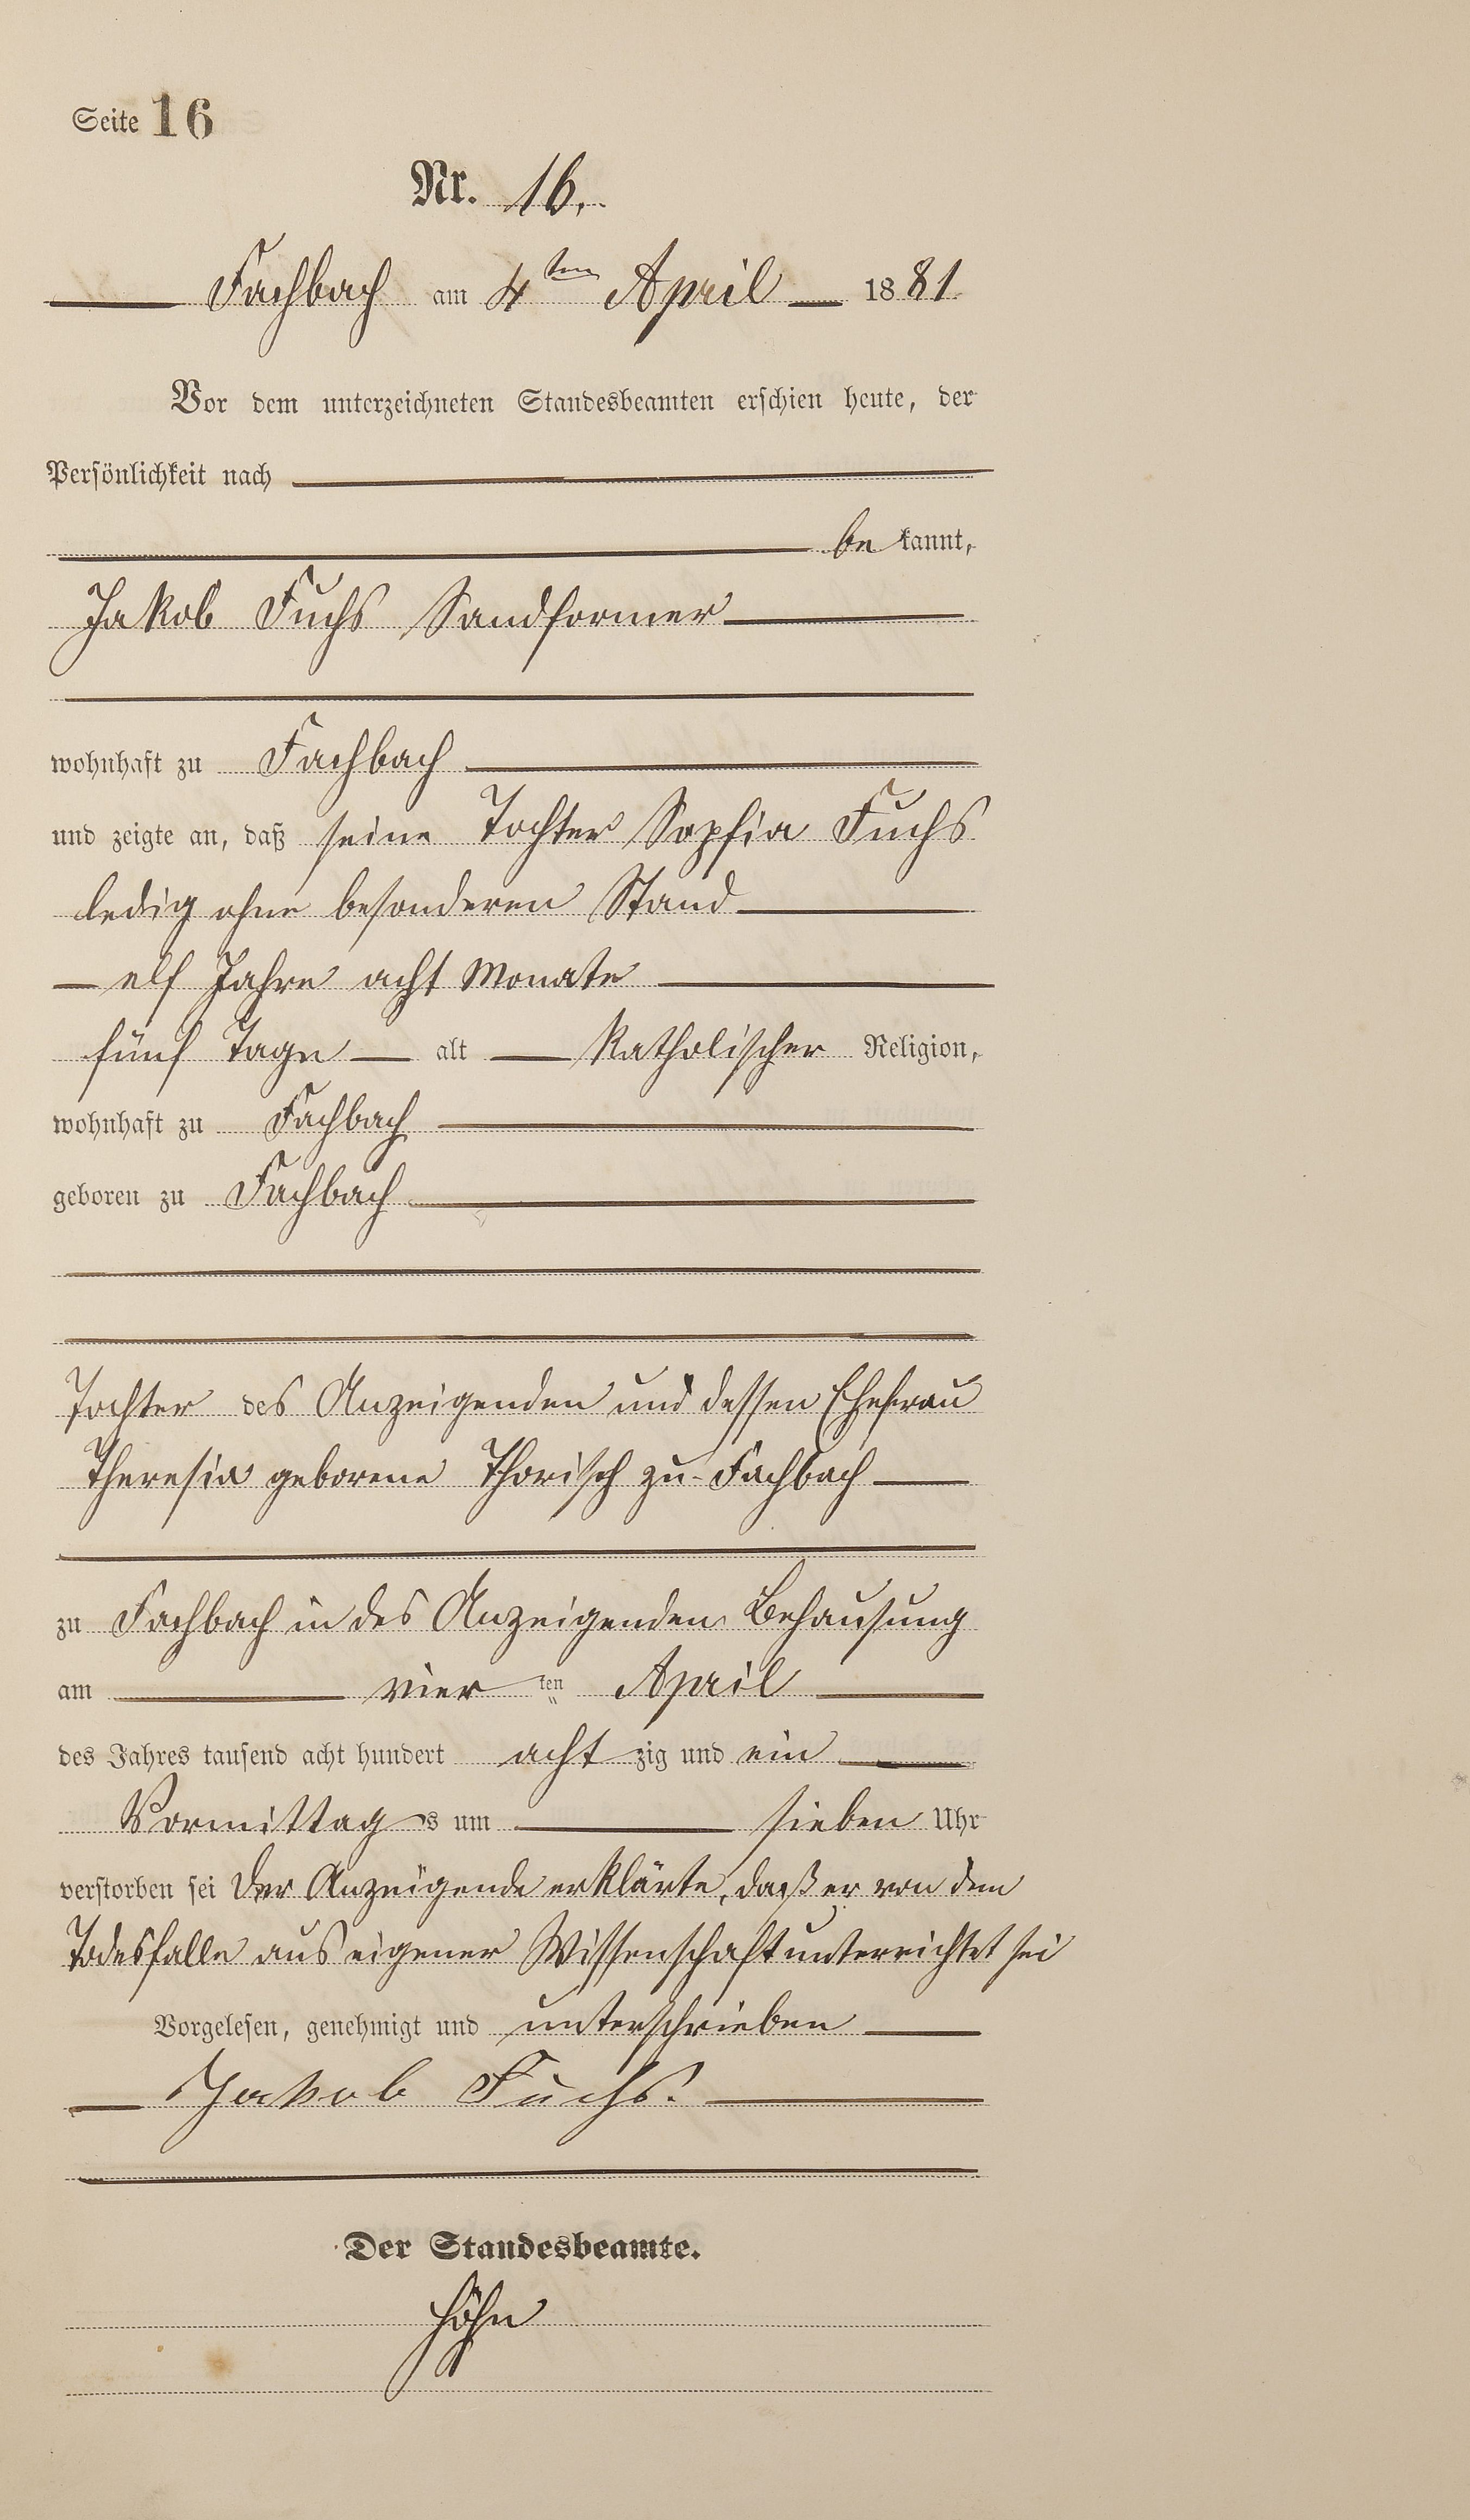 Seite 16
Nr. 16.
Fachbach am 4ten April 1881
Vor dem unterzeichneten Standesbeamten erschien heute, der
Persönlichkeit nach
bekannt,
Jakob Fuchs Sandformer
wohnhaft zu Fachbach
und zeigte an, daß seine Tochter Sophia Fuchs
ledig ohne besonderen Stand
elf Jahre acht Monate
fünf Tage alt katholischer Religion,
wohnhaft zu Fachbach
geboren zu Fachbach
Tochter des Anzeigenden und dessen Ehefrau
Theresia geborene Thorisch zu Fachbach
zu Fachbach in des Anzeigenden Behausung
am vier ten April
des Jahres tausend acht hundert acht zig und ein
Vormittags um sieben Uhr
verstorben sei Der Anzeigende erklärte, daß er von dem
Todesfalle aus eigener Wissenschaft unterrichtet sei
Vorgelesen, genehmigt und unterschrieben
Jakob Fuchs.
Der Standesbeamte.
Höhn